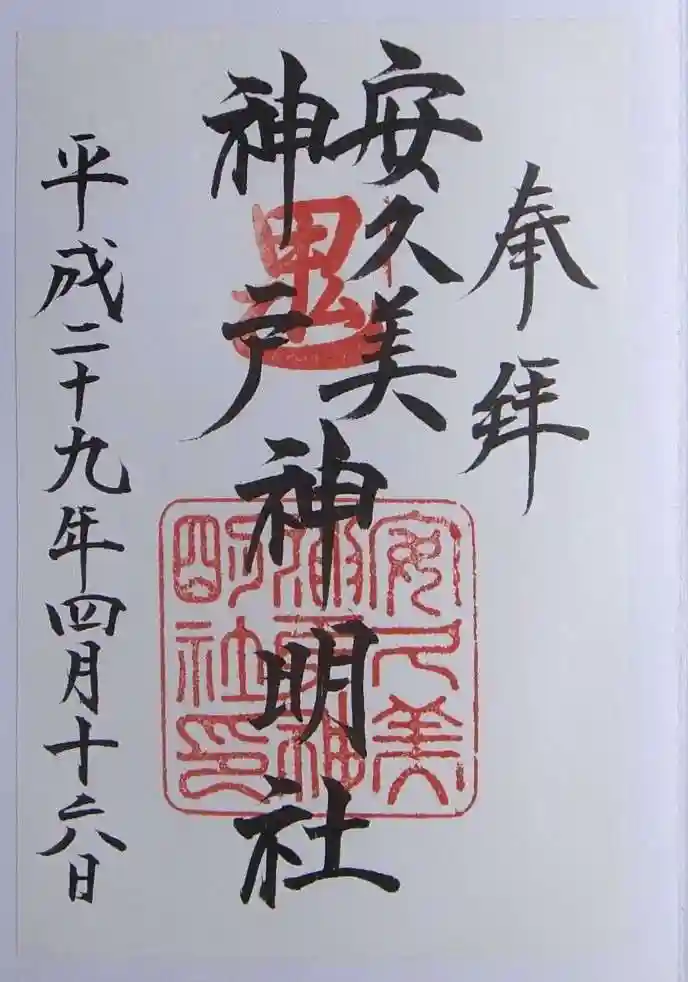 奉拝
安久美
神戸
神明社
平成二十九年四月十六日
鬼
安久美
神戸神
明社印